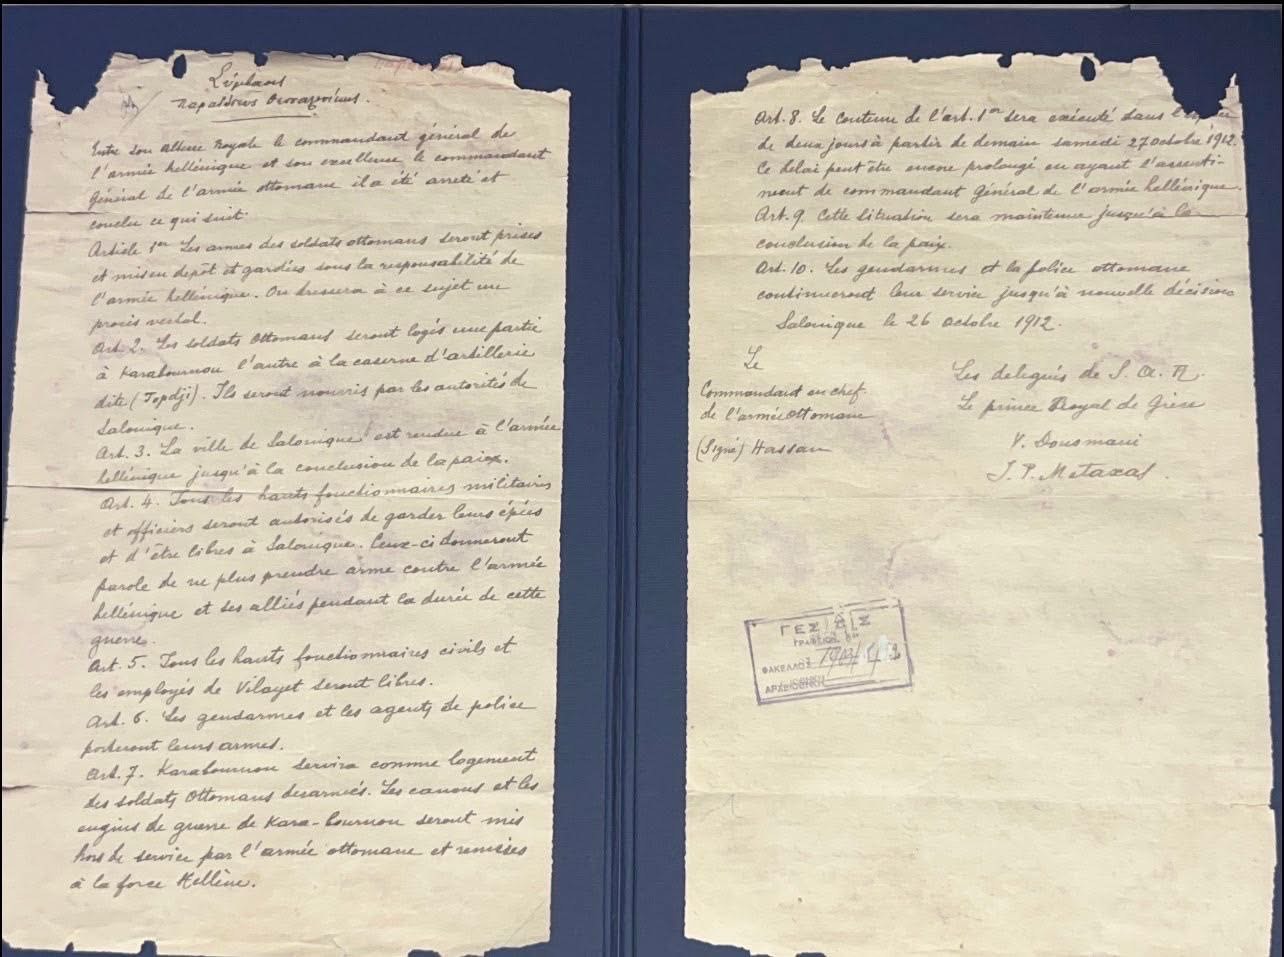 Σύμβασις
παραδόσεως Θεσσαλονίκης.
Entre son altesse Royale le commandant général de
l'armée hellénique et son excellence le commandant
Général de l'armée ottomane il a été arreté et
conclu ce qui suit.
Article 1er Les armes des soldats ottomans seront prises
et mis en depôt et gardées sous la responsabilité de
l'armée hellénique. On dressera à ce sujet un
procès verbal.
Art. 2. Les soldats Ottomans seront logés une partie
à Karabournou l'autre à la caserne d'artillerie
dite (Topdji). Ils seront nourris par les autorités de
Salonique.
Art. 3. La ville de Salonique est rendue à l'armée
hellénique jusqu'à la conclusion de la paix.
Art. 4. Tous les hauts fonctionnaires militaires
et officiers seront autorisés de garder leurs épées
et d'être libres à Salonique. Ceux-ci donneront
parole de ne plus prendre arme contre l'armée
hellénique et ses alliés pendant la durée de cette
guerre.
Art. 5. Tous les hauts fonctionnaires civils et
les employés de Vilayet seront libres.
Art. 6. Les gendarmes et les agents de police
porteront leurs armes.
Art. 7. Karabournou servira comme logement
des soldats Ottomans desarmés. Les canons et les
engins de guerre de Kara-bournou seront mis
hors de service par l'armée ottomane et remises
à la force Hellène.
Art. 8. Le contenu de l'art. 1er sera exécuté dans
de deux jours à partir de demain samedi 27 octobre 1912.
Ce delai peut être encore prolongé en ayant l'assenti-
ment de commandant Général de l'armée hellénique.
Art. 9. Cette situation sera maintenue jusqu'à la
conclusion de la paix.
Art. 10. Les gendarmes et la police ottomane
continueront leur service jusqu'à nouvelle décision
Salonique le 26 octobre 1912.
Le
Commandant en chef
de l'armée Ottomane
(Signé) Hassan
Les delegués de S. A. R.
Le prince Royal de Grèce
V. Dousmani
J. P. Metaxas.
ΓΕΣ/ΔΙΣ
ΦΑΚΕΛΛΟΣ